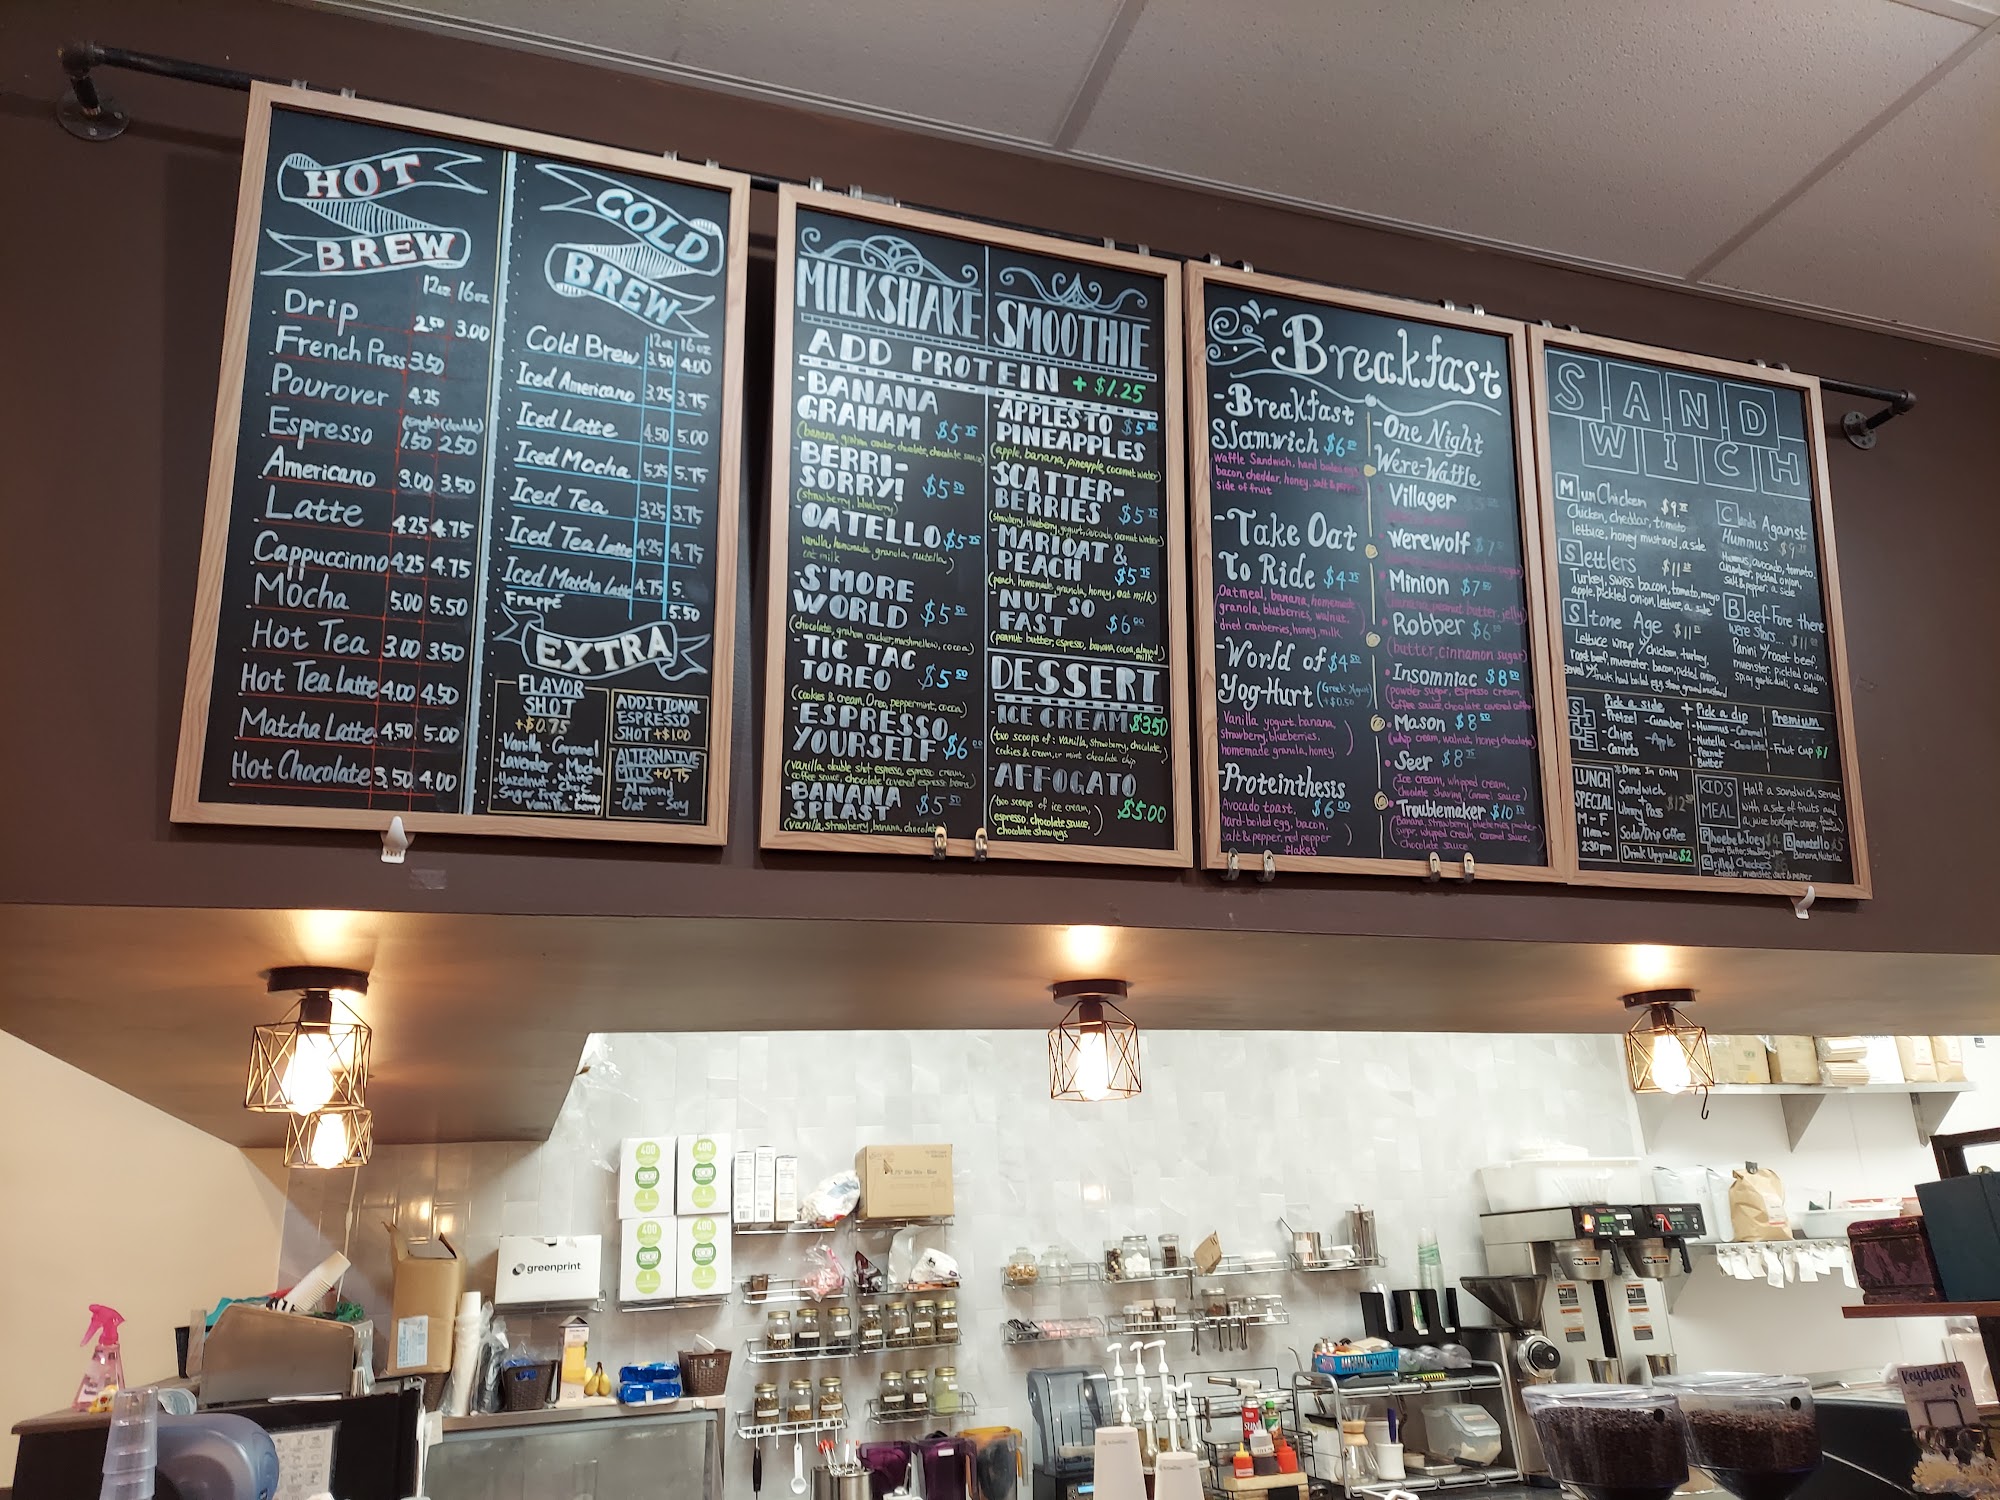 HOT
BREW
12oz 16oz
Drip 2.50 3.00
French Press 3.50
Pourover 4.25
(single) (double)
Espresso 1.50 2.50
Americano 3.00 3.50
Latte 4.25 4.75
Cappuccinno 4.25 4.75
Mocha 5.00 5.50
Hot Tea 3.00 3.50
Hot Tea Latte 4.00 4.50
Matcha Latte 4.50 5.00
Hot Chocolate 3.50 4.00
COLD
BREW
12oz 16oz
Cold Brew 3.50 4.00
Iced Americano 3.25 3.75
Iced Latte 4.50 5.00
Iced Mocha 5.25 5.75
Iced Tea 3.25 3.75
Iced Tea Latte 4.25 4.75
Iced Matcha Latte 4.75 5.
Frappé 5.50
EXTRA
FLAVOR
SHOT
+$0.75
- Vanilla - Caramel
- Lavender - Mocha
- Hazelnut - White
Choc
- Sugar Free
Vanilla
ADDITIONAL
ESPRESSO
SHOT +$1.00
ALTERNATIVE
MILK +0.75
- Almond
- Oat - Soy
MILKSHAKE
SMOOTHIE
ADD PROTEIN + $1.25
-BANANA
GRAHAM $5.75
(banana, graham cracker, chocolate, chocolate sauce)
-BERRI-
SORRY! $5.50
(strawberry, blueberry)
-OATELLO $5.75
vanilla, homemade granola, nutella,
oat milk)
-S'MORE
WORLD $5.50
(chocolate, graham cracker, marshmellow, cocoa)
-TIC TAC
TOREO $5.50
(cookies & cream, Oreo, peppermint, cocoa)
-ESPRESSO
YOURSELF $6.00
(vanilla, double shot espresso, espresso cream,
coffee sauce, chocolate covered espresso beans)
-BANANA
SPLAST $5.50
(vanilla, strawberry, banana, chocolate)
-APPLES TO $5.50
PINEAPPLES
(apple, banana, pineapple, coconut water)
-SCATTER-
BERRIES $5.75
(strawberry, blueberry, yogurt, avocado, coconut water)
-MARIOAT &
PEACH $5.75
(peach, homemade granola, honey, oat milk)
-NUT SO
FAST $6.00
(peanut butter, espresso, banana, cocoa, almond
milk)
DESSERT
-ICE CREAM $3.50
(two scoops of: Vanilla, Strawberry, chocolate,
cookies & cream, or mint chocolate chip
-AFFOGATO
$5.00
(two scoops of ice cream,
espresso, chocolate sauce,
chocolate shavings
Breakfast
-Breakfast
Slamwich $6
Waffle Sandwich, hard boiled egg,
bacon, cheddar, honey, salt & pepper
side of fruit
-Take Oat
To Ride $4.75
Oatmeal, banana, homemade
granola, blueberries, walnut,
dried cranberries, honey, milk
-World of $4.50
Yog-Hurt (Greek Yogurt)
(+$0.50)
Vanilla yogurt, banana,
strawberry, blueberries,
homemade granola, honey
-Proteinthesis
$6.00
Avocado toast,
hard-boiled egg, bacon,
salt & pepper, red pepper
flakes
-One Night
Were-Waffle
• Villager
• Werewolf $7
• Minion $7
(banana, peanut butter, jelly)
• Robber $6
(butter, cinnamon sugar)
• Insomniac $8
(powder sugar, espresso cream,
coffee sauce, chocolate covered coffee
• Mason $8.50
(whip cream, walnut, honey, chocolate)
• Seer $8.75
(Ice cream, whipped cream,
Chocolate shaving, Caramel sauce)
• Troublemaker $10
(Banana, strawberry, blueberries, powder
sugar, whipped cream, caramel sauce,
chocolate sauce
SAND
WICH
Mun Chicken $9
Chicken, cheddar, tomato
lettuce, honey mustard, a side
Settlers $11
Turkey, swiss bacon, tomato, mayo
apple, pickled onion, lettuce, a side
Stone Age $11
Lettuce wrap w/ chicken, turkey,
roast beef, muenster, bacon, pickled onion,
served w/ fruits hard boiled egg stone ground mustard
Cards Against
Hummus $9
Hummus, avocado, tomato,
cucumber, pickled onion,
salt & pepper, a side
Beef-Fore there
were stars... $11
Panini w/ roast beef,
muenster, pickled onion,
spicy garlic aioli, a side
SIDE
Pick a side
- Pretzel - Cucumber
- Chips - Apple
- Carrots
+ Pick a dip
- Hummus - Caramel
- Nutella - Chocolate
- Peanut
Butter
Premium
- Fruit Cup $1
LUNCH
SPECIAL
M-F
11am-
2:30pm
*Dine In Only
Sandwich
+
Library Pass $12
+
Soda/Drip Coffee
Drink Upgrade $2
KID'S
MEAL
Half a sandwich, served
with a side of fruits and
a juice box (apple, orange, fruit
punch)
Phoebe & Joey $4
Peanut Butter, Strawberry jam
Banatella $5
Banana, Nutella
Grilled Checkers $5
Cheddar, muenster, salt & pepper
greenprint
400
400
400
400
Keychains
$6